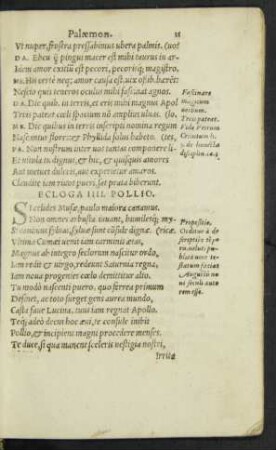 Palæmon. 21
Vt nuper, frustra pressabimus ubera palmis. (uo!
DA. Eheu quàm pingui macer est mihi taurus in ar-
Idem amor exitiũ est pecori, pecorisq; magistro.
ME. His certè neq; amor causa est, uix ossib. hærẽt:
Nescio quis teneros oculus mihi fascinat agnos.
DA. Dic quibus in terris, et eris mihi magnus Apol
Treis pateat cœli spacium nõ amplius ulnas. (lo.
ME. Dic quibus in terris inscripti nomina regum
Nascantur flores: & Phyllida solus habeto. (tes.
PA. Non nostrum inter uos tantas componere li-
Et uitula tu dignus, & hic, & quisquis amores
Aut metuet dulceis, aut experietur amaros.
Claudite iam riuos pueri, sat prata biberunt.
ECLOGA IIII. POLLIO.
Sicelides Musæ, paulò maiora canamus.
Non omnes arbusta iuuant, humilesq; my-
Si canimus syluas, syluæ sint cõsule dignæ. (ricæ.
Vltima Cumæi uenit iam carminis ætas,
Magnus ab integro seclorum nascitur ordo,
Iam redit & uirgo, redeunt Saturnia regna,
Iam noua progenies cœlo demittitur alto.
Tu modò nascenti puero, quo ferrea primum
Desinet, ac toto surget gens aurea mundo,
Casta faue Lucina, tuus iam regnat Apollo.
Teq; adeò decus hoc æui, te consule inibit
Pollio, & incipient magni procedere menses.
Te duce, si qua manent sceleris uestigia nostri,
Irrita
Fascinare
Propositio.